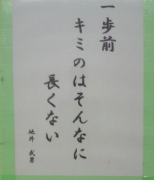 一歩前
キミのはそんなに
長くない
地井 武男